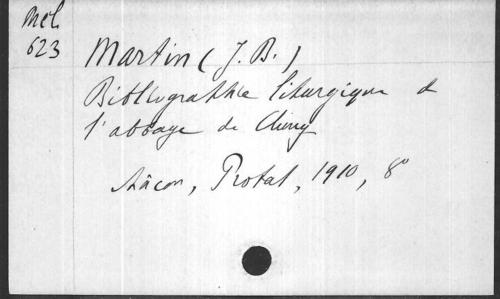 Mél.
623
Martin (J. B.)
Bibliographie liturgique de
l'abbaye de Cluny
Mâcon, Protat, 1910, 8°